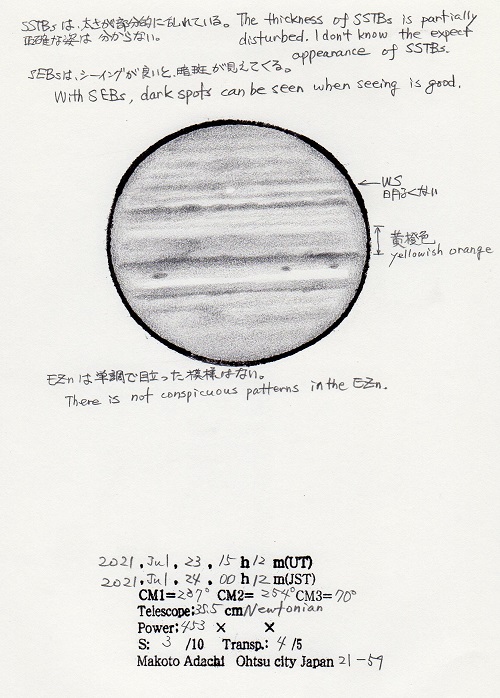 SSTBsは、太さが部分的に乱れている。 The thickness of SSTBs is partially
正確な姿は 分からない。 disturbed. I don't know the expect
appearance of SSTBs.
SEBsは、シーイングが良いと、暗斑が見えてくる。
With SEBs, dark spots can be seen when seeing is good.
← WS
明るくない
黄橙色
yellowish orange
EZnは単調で目立った模様はない。
There is not conspicuous patterns in the EZn.
2021, Jul, 23, 15 h 12 m(UT)
2021, Jul, 24, 00 h 12 m(JST)
CM1=287° CM2= 254° CM3= 70°
Telescope: 35.5 cm Newtonian
Power: 453 × ×
S: 3 /10 Transp.: 4 /5
Makoto Adachi Ohtsu city Japan 21-59